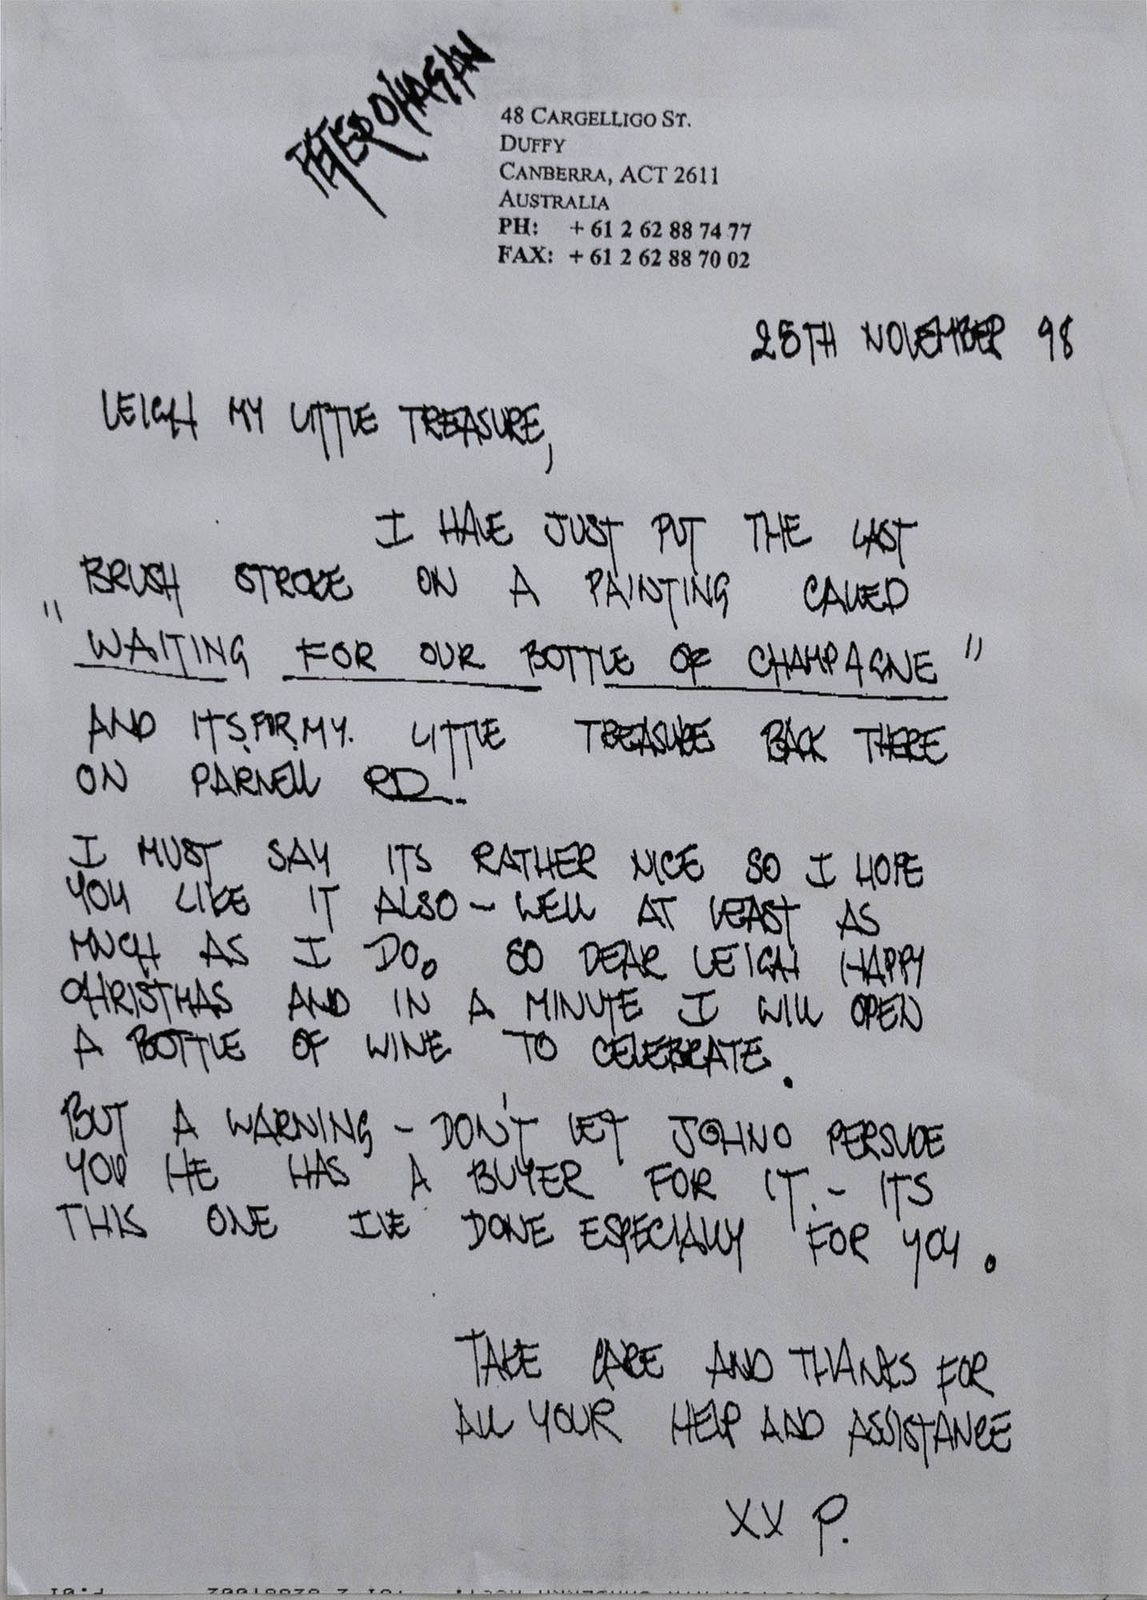 PETER O'HAGAN
48 CARGELLIGO ST.
DUFFY
CANBERRA, ACT 2611
AUSTRALIA
PH: + 61 2 62 88 74 77
FAX: + 61 2 62 88 70 02
25TH NOVEMBER 98
LEIGH MY LITTLE TREASURE,
I HAVE JUST PUT THE LAST
BRUSH STROKE ON A PAINTING CALLED
"WAITING FOR OUR BOTTLE OF CHAMPAGNE"
AND ITS.FOR.MY. LITTLE TREASURE BACK THERE
ON PARNELL RD..
I MUST SAY ITS RATHER NICE SO I HOPE
YOU LIKE IT ALSO - WELL AT LEAST AS
MUCH AS I DO. SO DEAR LEIGH HAPPY
CHRISTMAS AND IN A MINUTE I WILL OPEN
A BOTTLE OF WINE TO CELEBRATE.
BUT A WARNING - DON'T LET JOHNO PERSUDE
YOU HE HAS A BUYER FOR IT. - ITS
THIS ONE I'VE DONE ESPECIALLY FOR YOU.
TAKE CARE AND THANKS FOR
ALL YOUR HELP AND ASSISTANCE
XX P.